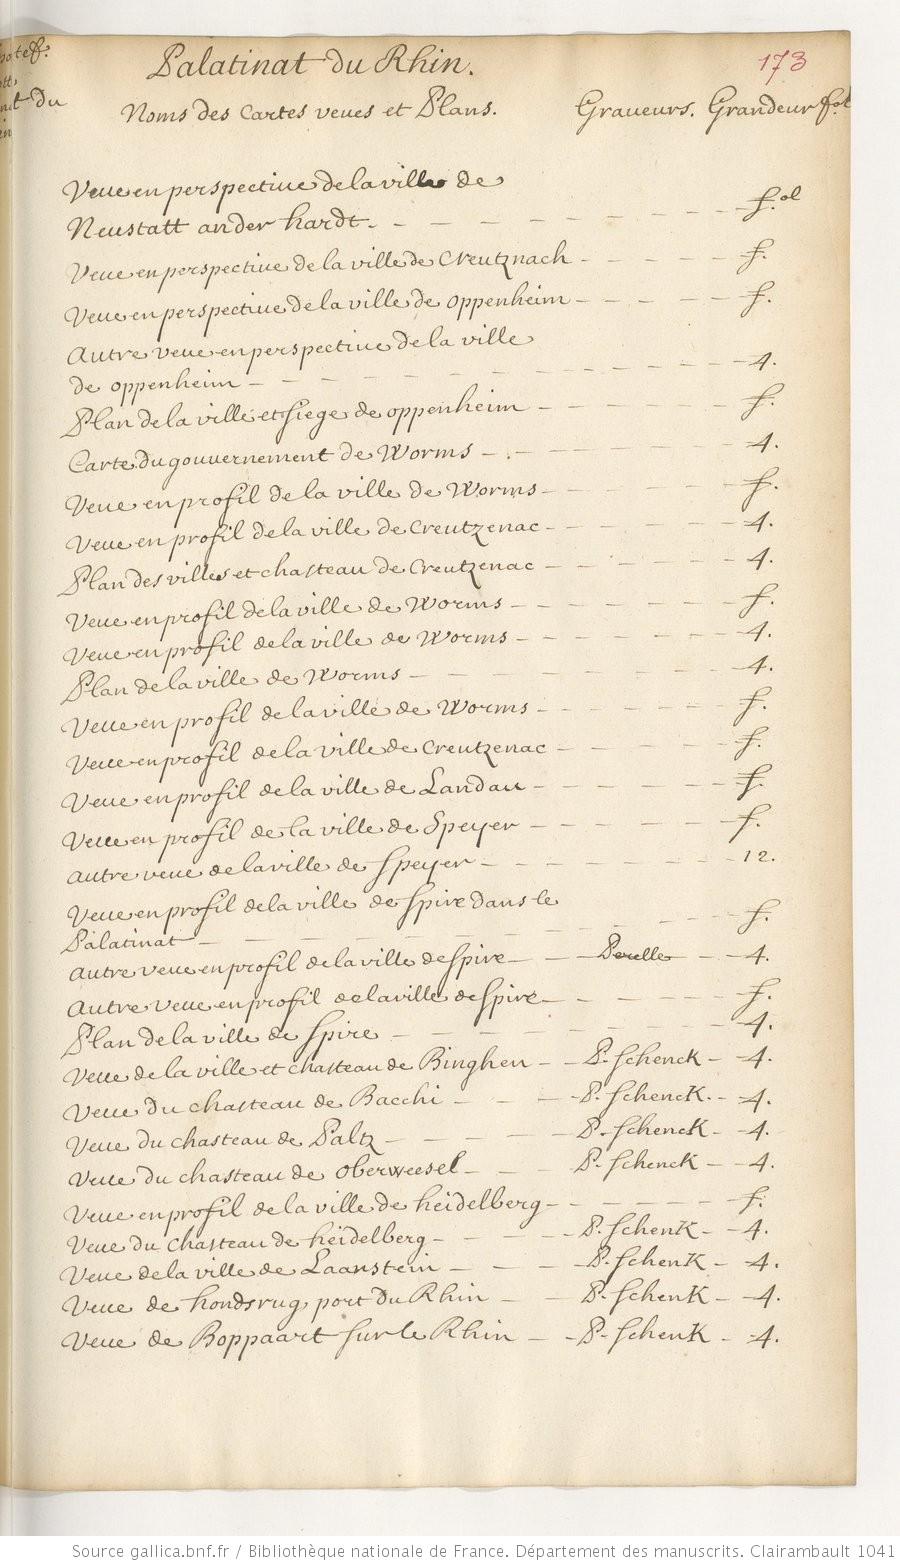 Palatinat du Rhin.
173
du
Noms des Cartes veues et Plans. Graveurs. Grandeur fol
Veue en perspective de la ville de
Neustatt ander hardt. f.ol
Veue en perspective de la ville de Creutznach f.
Veue en perspective de la ville de oppenheim f.
Autre veue en perspective de la ville
de oppenheim 4.
Plan de la ville et siege de oppenheim f.
Carte du gouvernement de Worms 4.
Veue en profil de la ville de Worms f.
Veue en profil de la ville de Creutzenac 4.
Plan des villes et chasteau de Creutzenac 4.
Veue en profil de la ville de Worms f.
Veue en profil de la ville de Worms 4.
Plan de la ville de Worms 4.
Veue en profil de la ville de Worms f.
Veue en profil de la ville de Creutzenac f.
Veue en profil de la ville de Landau f.
Veue en profil de la ville de Speyer f.
autre veue de la ville de Speyer 12.
Veue en profil de la ville de Spire dans le
Palatinat f.
Autre veue en profil de la ville de Spire Perelle 4.
Autre Veue en profil de la ville de Spire f.
Plan de la ville de Spire 4.
Veue de la ville et chasteau de Binghen P. Schenck 4.
Veue du chasteau de Bacchi P. Schenck. 4.
Veue du chasteau de Paltz P. Schenck 4.
Veue du chasteau de Oberweesel P. Schenck 4.
Veue en profil de la ville de heidelberg f.
Veue du chasteau de heidelberg P. Schenk 4.
Veue de la ville de Laanstein P. Schenk 4.
Veue de hondsrug port du Rhin P. Schenk 4.
Veue de Boppaart sur le Rhin P. Schenk 4.
Source gallica.bnf.fr / Bibliothèque nationale de France. Département des manuscrits. Clairambault 1041